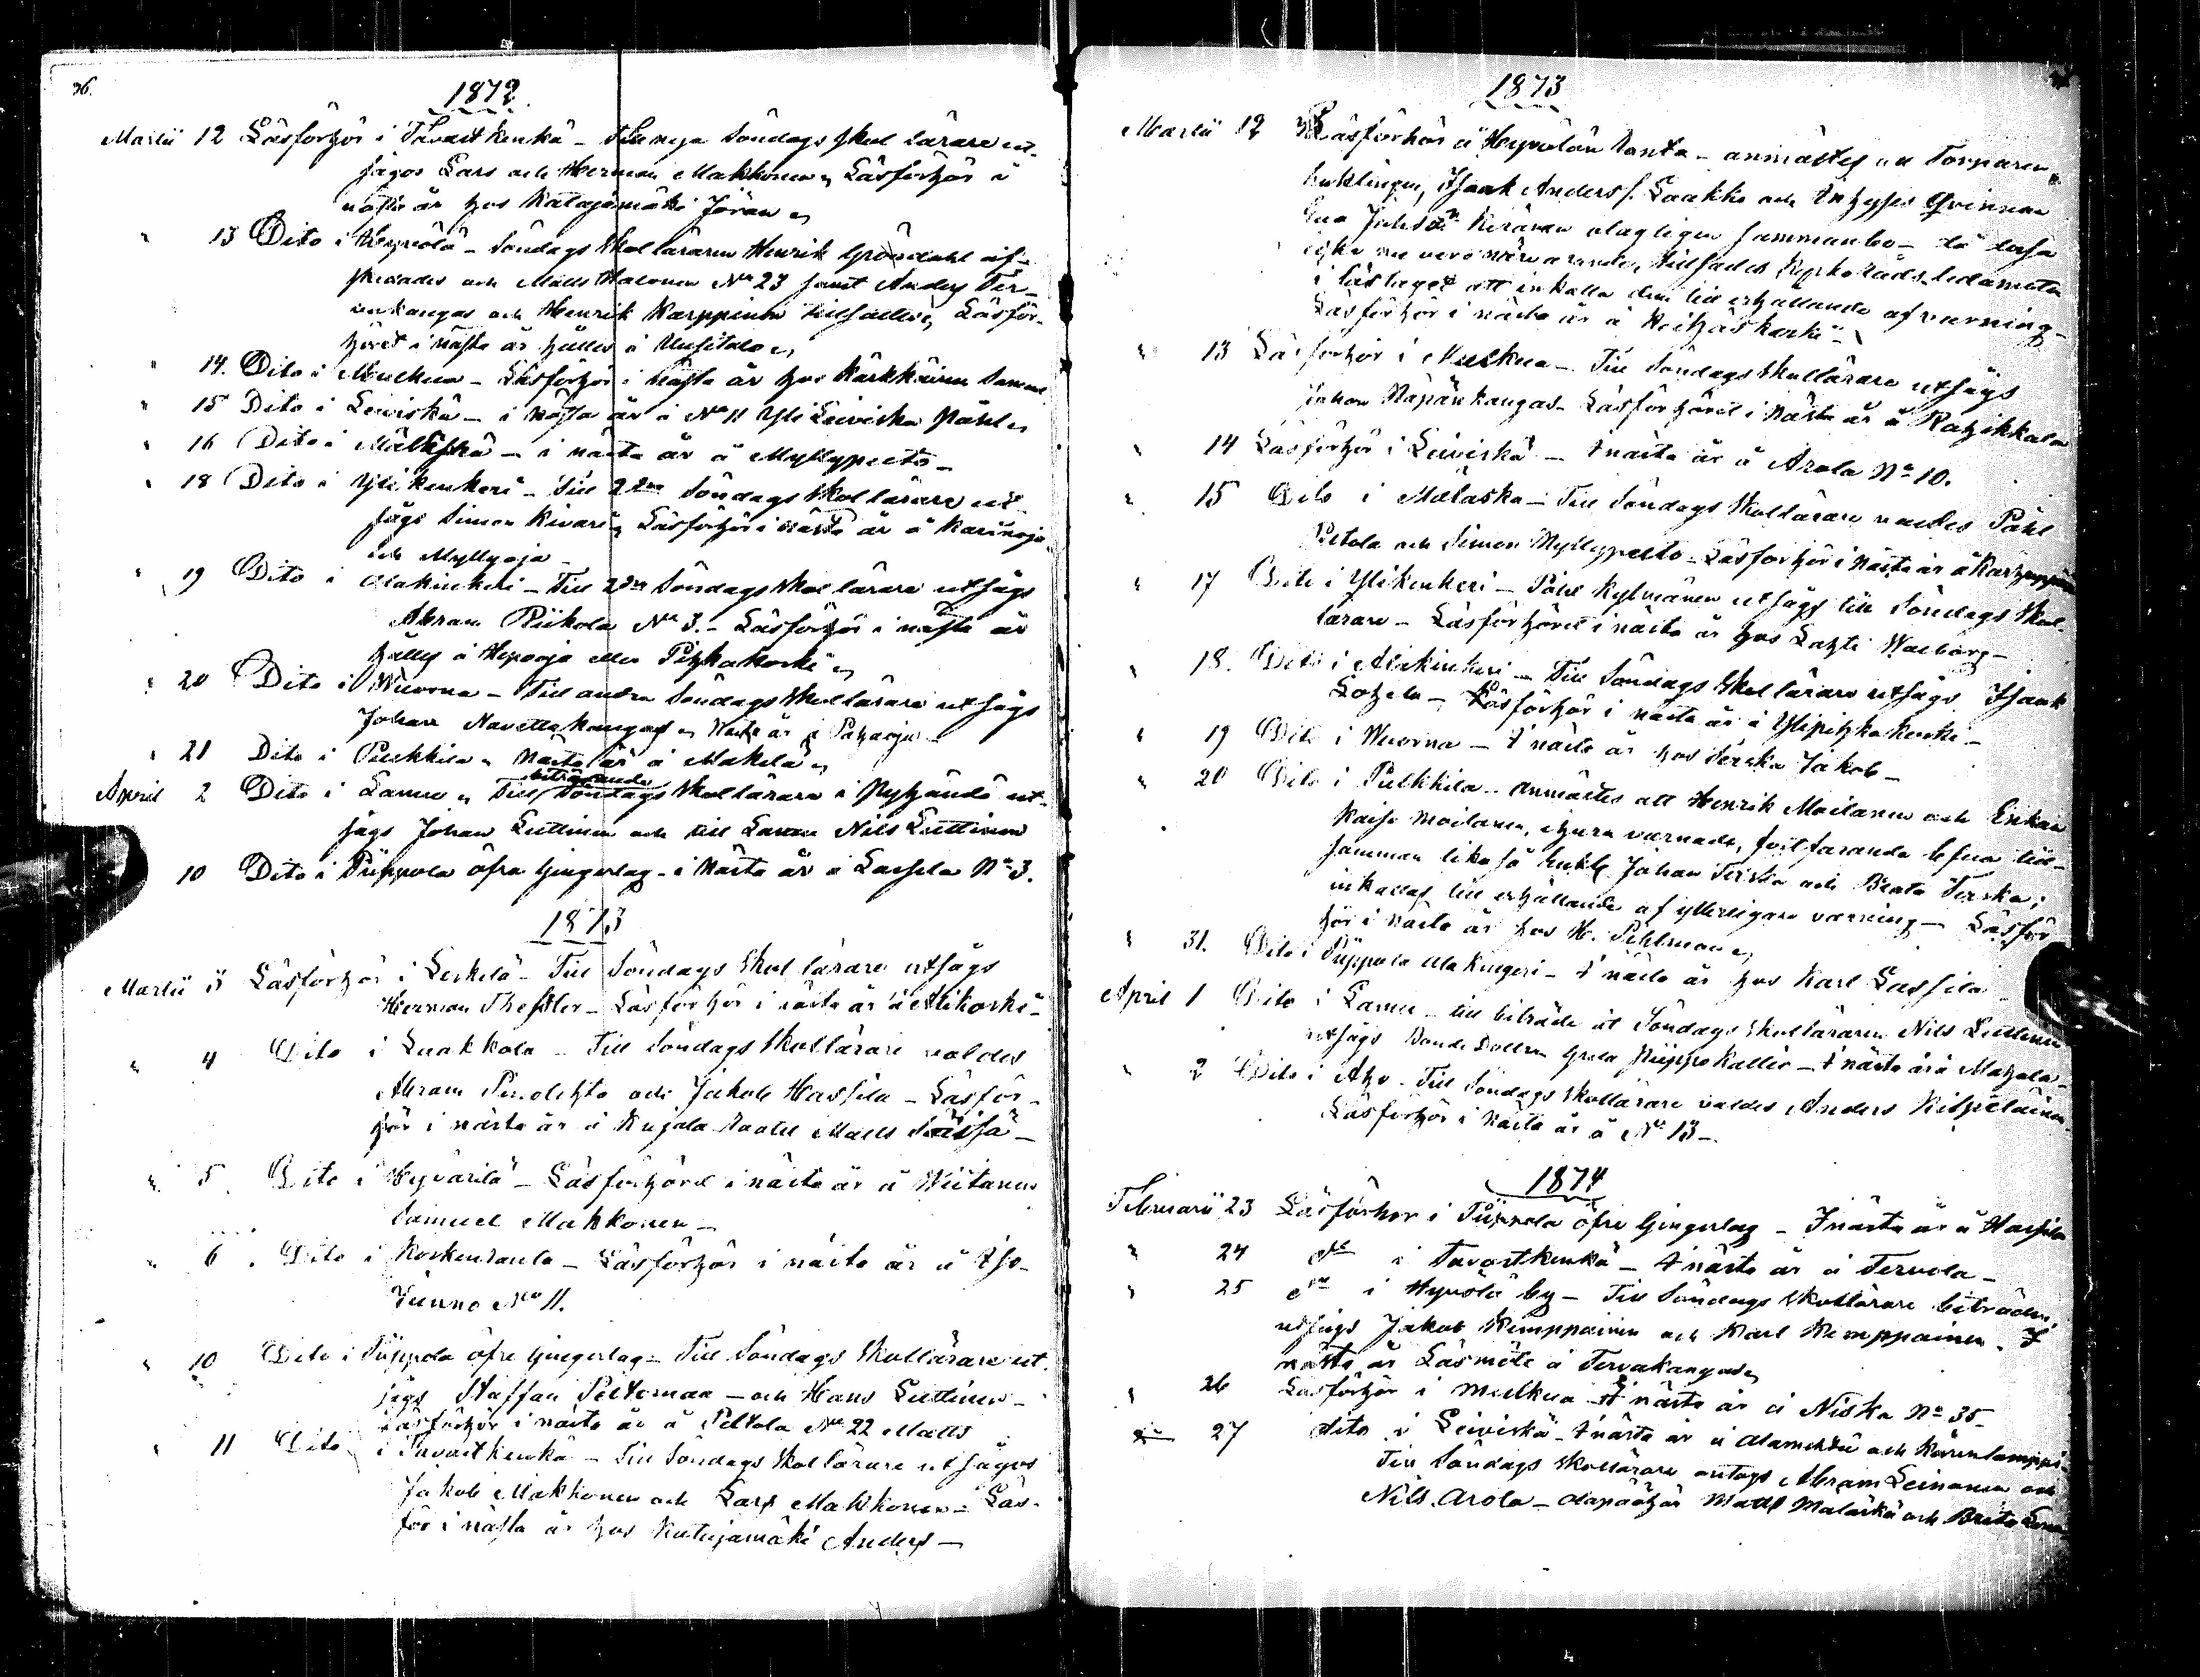 36.
1872.
Martii 12 Läsförhör i Tavastkenkä - Till nya Söndags skol lärare ut-
sågos Lars och Herman Makkonen, Läsförhör i
nästa år hos Katajamäki Jöran
" 13 Dito i Hyvölä - Söndags Skolläraren Henrik Gröndahl af-
skedades och Matts Halonen No 23 samt Anders Ter-
vakangas och Henrik Karppinen tillsattes, Läsför-
höret i nästa år hålles å Uusitalo
" 14. Dito i Mulkua - Läsförhör i nästa år hos Kärkkäinen Samuel
" 15 Dito i Leiviskä - i nästa år å No 11 Yli Leiviskä Påhl
" 16 Dito i Mäläskä - i nästa år å Myllypelto -
" 18 Dito i Ylikenkeri - Till 2dra Söndags Skol lärare ut-
sågs Simon Kivari, Läsförhör i nästa år å Karinoja
och Myllyoja -
" 19 Dito i Alakinkeri - Till 2dra Söndagsskol lärare utsågs
Abram Piikola No 3. - Läsförhör i nästa år
hålles å Heposja eller Pihkakoski
" 20 Dito i Wuorna - Till andra Söndagsskollärare utsågs
Johan Navettakangas, Nästa år å
" 21 Dito i Pulkkila, Nästa år å Makela
April 2 Dito i Lamu, Till biträdande Söndags Skollärare i Pyhändö ut-
sågs Johan Luttinen och till Lamu Nils Luttinen
10 Dito i Piippola öfra Gingerlag - i Nästa år å Lassila No 3.
1873
Martii 3 Läsförhör i Leskelä - Till Söndags Skol lärare utsågs
Herman Thesler - Läsförhör i nästa år å Alikoski -
" 4 Dito i Laakkola - Till Söndags Skollärare valdes
Abram Pinolehto och Jakob Hassila - Läsför-
hör i nästa år å Kujala Matts
" 5 Dito i Hyvärilä - Läsförhöret i nästa år å Wiitanen
Samuel Makkonen -
" 6. Dito i Koskenranta - Läsförhör i nästa år å Iso-
Junno No 11.
" 10 Dito i Piippola öfre Gingerlag - Till Söndags Skollärare ut-
sågs Staffan Peltomaa - och Hans Luttinen -
Läsförhör i nästa år å Peltola No 22 Matts
" 11 Dito i Tavastkenkä - Till Söndags Skollärare utsågos
Jakob Makkonen och Lars Makkonen - Läs-
för i nästa år hos Katajamäki Anders -
1873
Martii 12 Läsförhör å Hyvölän Ranta - anmältes att Torparen
Isaak Anders s. Laakko och Inhyses Qvinnan
Keränen olagligen sammanbo - då dessa
icke nu voro närvarande, tillsades Kyrkoråds ledamoten
i läslaget att inkalla dem till erhållande af varning -
Läsförhör i nästa år å Koihäskoski -
" 13 Läsförhör i Mulkua - Till Söndags Skollärare utsågs
Johan Näpänkangas - Läsförhöret i Nästa år å Rahikkala
" 14 Läsförhör i Leiviskä - I nästa år å Arola No 10.
" 15 Dito i Mäläskä - Till Söndags Skollärare valdes Påhl
Pietola och Simon Myllypelto - Läsförhör i Nästa år å
" 17 Dito i Ylikenkeri - Påhl Kylmänen utsågs till Söndags Skol-
lärare - Läsförhöret i nästa år hos Lahti Walborg -
" 18. Dito i Alakinkeri - Till Söndags Skollärare utsågs Isaak
- Läsförhör i nästa år å Ylipihkakoski -
" 19 Dito i Wuorna - I nästa år hos Terska Jakob -
" 20 Dito i Pulkkila - Anmältes att Henrik Moilanen och Enkan
Kaisa Moilanen, ehuru varnade, fortfarande lefva till-
samman likaså Johan Terska och Beata Terska;
inkallas till erhållande af ytterligare varning - Läsför
hör i nästa år hos H. Pihlman
" 31. Dito i Piippola Alakingeri - I nästa år hos Karl Lassila
April 1 Dito i Lamu - till biträde åt Söndags Skolläraren Nils Luttinen
utsågs Bonde Dottren Greta Piippo Kallio - I nästa år å Mahala -
" 2 Dito i Aho - Till Söndags Skollärare valdes Anders Kilpeläinen
Läsförhör i nästa år å No 13 -
1874
Februarii 23 Läsförhör i Piippola öfre Gingerlag - I nästa år å Hassila
" 24 do i Tavastkenkä - I nästa år å Tervola -
" 25 do i Hyvölä by - Till Söndags Skollärare biträden,
utsågs Jakob Kemppainen och Karl Kemppainen. I
nästa år Läsmöte å Tervakangas
" 26 Läsförhör i Mulkua - I nästa år å Niska No 35 -
27 dito i Leiviskä - I nästa år å och
Till Söndags skollärare antogs Abram Leinonen och
Nils Arola - Matts Mäläskä och Brita